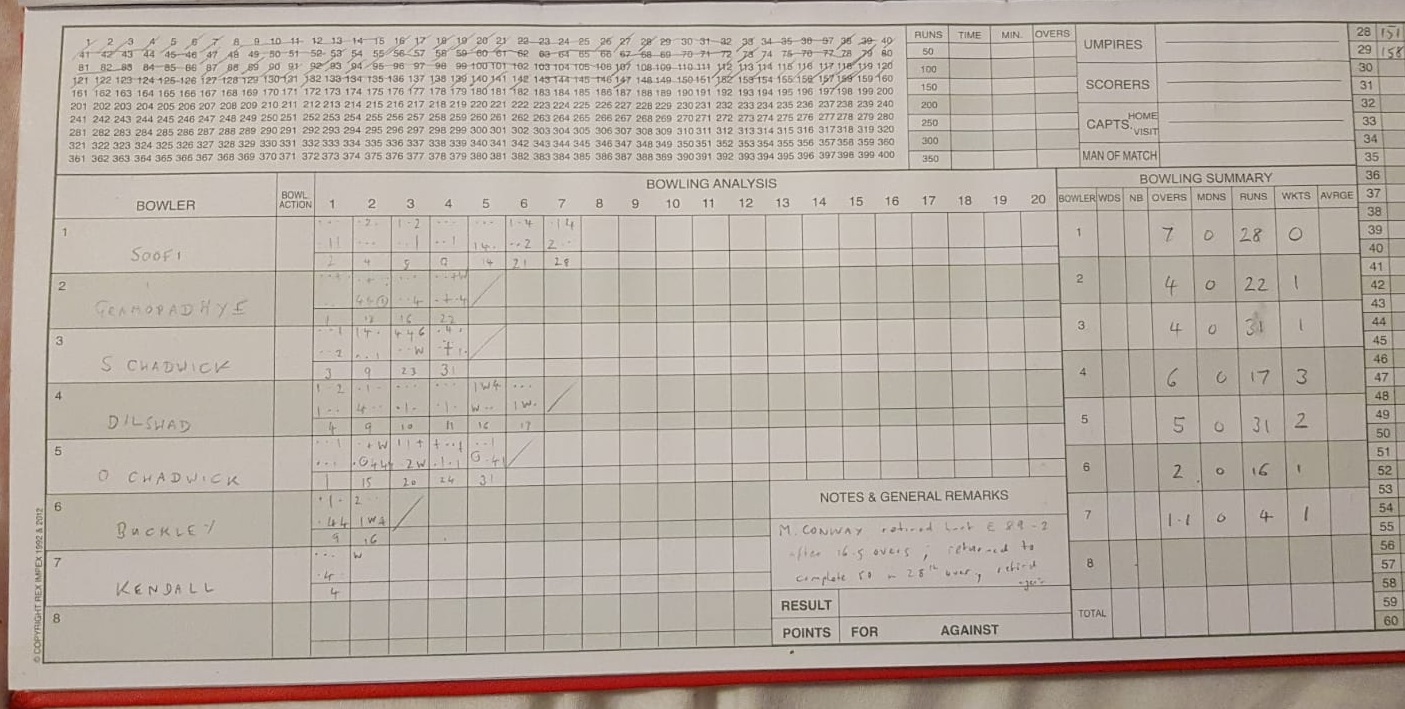 1 2 3 4 5 6 7 8 9 10 11 12 13 14 15 16 17 18 19 20 21 22 23 24 25 26 27 28 29 30 31 32 33 34 35 36 37 38 39 40
41 42 43 44 45 46 47 48 49 50 51 52 53 54 55 56 57 58 59 60 61 62 63 64 65 66 67 68 69 70 71 72 73 74 75 76 77 78 79 80
81 82 83 84 85 86 87 88 89 90 91 92 93 94 95 96 97 98 99 100 101 102 103 104 105 106 107 108 109 110 111 112 113 114 115 116 117 118 119 120
121 122 123 124 125 126 127 128 129 130 131 132 133 134 135 136 137 138 139 140 141 142 143 144 145 146 147 148 149 150 151 152 153 154 155 156 157 158 159 160
161 162 163 164 165 166 167 168 169 170 171 172 173 174 175 176 177 178 179 180 181 182 183 184 185 186 187 188 189 190 191 192 193 194 195 196 197 198 199 200
201 202 203 204 205 206 207 208 209 210 211 212 213 214 215 216 217 218 219 220 221 222 223 224 225 226 227 228 229 230 231 232 233 234 235 236 237 238 239 240
241 242 243 244 245 246 247 248 249 250 251 252 253 254 255 256 257 258 259 260 261 262 263 264 265 266 267 268 269 270 271 272 273 274 275 276 277 278 279 280
281 282 283 284 285 286 287 288 289 290 291 292 293 294 295 296 297 298 299 300 301 302 303 304 305 306 307 308 309 310 311 312 313 314 315 316 317 318 319 320
321 322 323 324 325 326 327 328 329 330 331 332 333 334 335 336 337 338 339 340 341 342 343 344 345 346 347 348 349 350 351 352 353 354 355 356 357 358 359 360
361 362 363 364 365 366 367 368 369 370 371 372 373 374 375 376 377 378 379 380 381 382 383 384 385 386 387 388 389 390 391 392 393 394 395 396 397 398 399 400
RUNS TIME MIN. OVERS
50
100
150
200
250
300
350
UMPIRES
SCORERS
CAPTS. HOME
VISIT
MAN OF MATCH
28 151
29 158
30
31
32
33
34
35
36
37
38
39
40
41
42
43
44
45
46
47
48
49
50
51
52
53
54
55
56
57
58
59
60
BOWLER BOWL. ACTION BOWLING ANALYSIS
1 2 3 4 5 6 7 8 9 10 11 12 13 14 15 16 17 18 19 20
1 SOOFI
2 4 5 14 21 28
2 GRAMOPADHYE
1 16 22
3 S CHADWICK
3 9 23 31
4 DILSHAD
4 9 10 11 16 17
5 O CHADWICK
1 15 20 24 31
6 BUCKLEY
9 16
7 KENDALL
4
8
BOWLING SUMMARY
BOWLER WDS NB OVERS MDNS RUNS WKTS AVRGE
1 7 0 28 0
2 4 0 22 1
3 4 0 31 1
4 6 0 17 3
5 5 0 31 2
6 2 0 16 1
7 1.1 0 4 1
8
TOTAL
NOTES & GENERAL REMARKS
M. CONWAY retired hurt @ 89-2
after 16.5 overs; returned to
complete 50 in 28th over, retired
again
RESULT
POINTS FOR AGAINST
© COPYRIGHT REX IMPEX 1992 & 2012